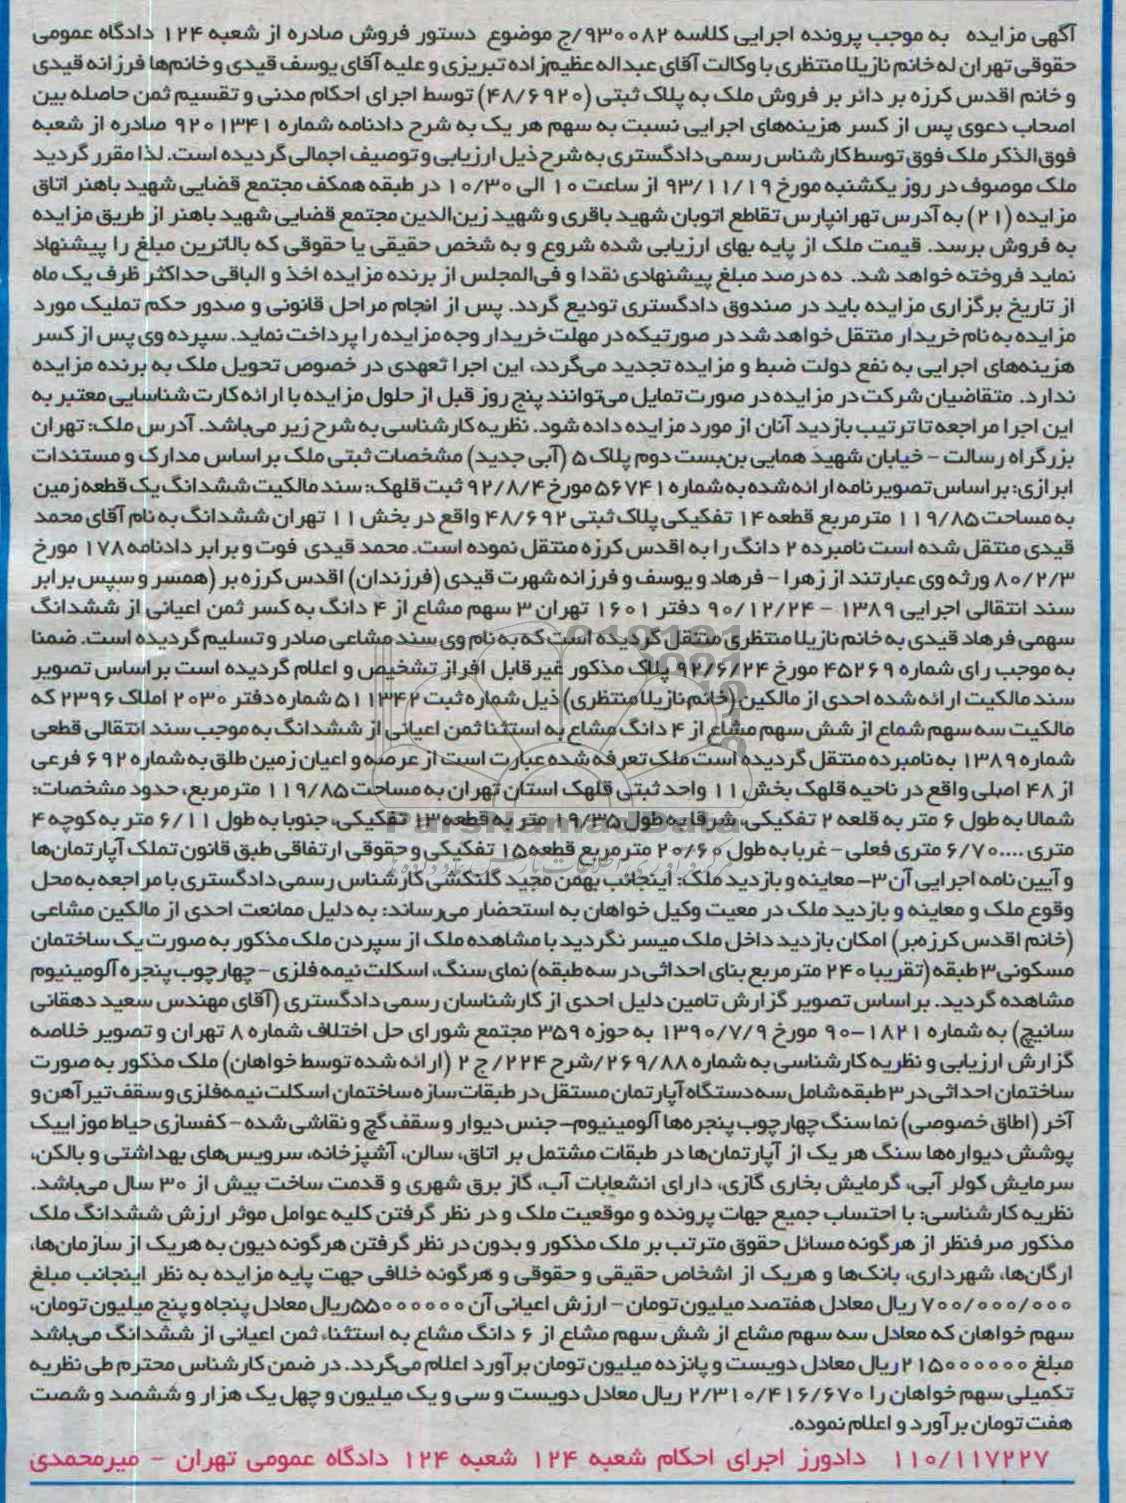 آگهی مزایده به موجب پرونده اجرایی کلاسه ۹۳۰۰۸۲/ج موضوع دستور فروش صادره از شعبه ۱۲۴ دادگاه عمومی
حقوقی تهران له خانم نازیلا منتظری با وکالت آقای عبداله عظیم‌زاده تبریزی و علیه آقای یوسف قیدی و خانم‌ها فرزانه قیدی
و خانم اقدس کرزه بر دائر بر فروش ملک به پلاک ثبتی (۴۸/۶۹۲۰) توسط اجرای احکام مدنی و تقسیم ثمن حاصله بین
اصحاب دعوی پس از کسر هزینه‌های اجرایی نسبت به سهم هر یک به شرح دادنامه شماره ۹۲۰۱۳۴۱ صادره از شعبه
فوق‌الذکر ملک فوق توسط کارشناس رسمی دادگستری به شرح ذیل ارزیابی و توصیف اجمالی گردیده است. لذا مقرر گردید
ملک موصوف در روز یکشنبه مورخ ۹۳/۱۱/۱۹ از ساعت ۱۰ الی ۱۰/۳۰ در طبقه همکف مجتمع قضایی شهید باهنر اتاق
مزایده (۲۱) به آدرس تهرانپارس تقاطع اتوبان شهید باقری و شهید زین‌الدین مجتمع قضایی شهید باهنر از طریق مزایده
به فروش برسد. قیمت ملک از پایه بهای ارزیابی شده شروع و به شخص حقیقی یا حقوقی که بالاترین مبلغ را پیشنهاد
نماید فروخته خواهد شد. ده درصد مبلغ پیشنهادی نقدا و فی‌المجلس از برنده مزایده اخذ و الباقی حداکثر ظرف یک ماه
از تاریخ برگزاری مزایده باید در صندوق دادگستری تودیع گردد. پس از انجام مراحل قانونی و صدور حکم تملیک مورد
مزایده به نام خریدار منتقل خواهد شد در صورتیکه در مهلت خریدار وجه مزایده را پرداخت نماید. سپرده وی پس از کسر
هزینه‌های اجرایی به نفع دولت ضبط و مزایده تجدید می‌گردد، این اجرا تعهدی در خصوص تحویل ملک به برنده مزایده
ندارد. متقاضیان شرکت در مزایده در صورت تمایل می‌توانند پنج روز قبل از حلول مزایده با ارائه کارت شناسایی معتبر به
این اجرا مراجعه تا ترتیب بازدید آنان از مورد مزایده داده شود. نظریه کارشناسی به شرح زیر می‌باشد. آدرس ملک: تهران
بزرگراه رسالت - خیابان شهید همایی بن‌بست دوم پلاک ۵ (آبی جدید) مشخصات ثبتی ملک براساس مدارک و مستندات
ابرازی: براساس تصویر نامه ارائه شده به شماره ۵۶۷۴۱ مورخ ۹۲/۸/۴ ثبت قلهک: سند مالکیت ششدانگ یک قطعه زمین
به مساحت ۱۱۹/۸۵ مترمربع قطعه ۱۴ تفکیکی پلاک ثبتی ۴۸/۶۹۲ واقع در بخش ۱۱ تهران ششدانگ به نام آقای محمد
قیدی منتقل شده است نامبرده ۲ دانگ را به اقدس کرزه منتقل نموده است. محمد قیدی فوت و برابر دادنامه ۱۷۸ مورخ
۸۰/۲/۳ ورثه وی عبارتند از زهرا - فرهاد و یوسف و فرزانه شهرت قیدی (فرزندان) اقدس کرزه بر (همسر و سپس برابر
سند انتقالی اجرایی ۱۳۸۹ - ۹۰/۱۲/۲۴ دفتر ۱۶۰۱ تهران ۳ سهم مشاع از ۴ دانگ به کسر ثمن اعیانی از ششدانگ
سهمی فرهاد قیدی به خانم نازیلا منتظری منتقل گردیده است که به نام وی سند مشاعی صادر و تسلیم گردیده است. ضمنا
به موجب رای شماره ۴۵۲۶۹ مورخ ۹۲/۶/۲۴ پلاک مذکور غیرقابل افراز تشخیص و اعلام گردیده است براساس تصویر
سند مالکیت ارائه شده احدی از مالکین (خانم نازیلا منتظری) ذیل شماره ثبت ۵۱۱۳۴۲ شماره دفتر ۲۰۳۰ املاک ۲۳۹۶ که
مالکیت سه سهم شماع از شش سهم مشاع از ۴ دانگ مشاع به استثنا ثمن اعیانی از ششدانگ به موجب سند انتقالی قطعی
شماره ۱۳۸۹ به نامبرده منتقل گردیده است ملک تعرفه شده عبارت است از عرصه و اعیان زمین طلق به شماره ۶۹۲ فرعی
از ۴۸ اصلی واقع در ناحیه قلهک بخش ۱۱ واحد ثبتی قلهک استان تهران به مساحت ۱۱۹/۸۵ مترمربع، حدود مشخصات:
شمالا به طول ۶ متر به قلعه ۲ تفکیکی، شرقا به طول ۱۹/۳۵ متر به قطعه ۱۳ تفکیکی، جنوبا به طول ۶/۱۱ متر به کوچه ۴
متری ....۶/۷۰ متری فعلی - غربا به طول ۲۰/۶۰ مترمربع قطعه ۱۵ تفکیکی و حقوقی ارتفاقی طبق قانون تملک آپارتمان‌ها
و آیین نامه اجرایی آن ۳- معاینه و بازدید ملک: اینجانب بهمن مجید گلنکشی کارشناس رسمی دادگستری با مراجعه به محل
وقوع ملک و معاینه و بازدید ملک در معیت وکیل خواهان به استحضار می‌رساند: به دلیل ممانعت احدی از مالکین مشاعی
(خانم اقدس کرزه‌بر) امکان بازدید داخل ملک میسر نگردید با مشاهده ملک از سپردن ملک مذکور به صورت یک ساختمان
مسکونی ۳ طبقه (تقریبا ۲۴۰ مترمربع بنای احداثی در سه طبقه) نمای سنگ، اسکلت نیمه فلزی - چهارچوب پنجره آلومینیوم
مشاهده گردید. براساس تصویر گزارش تامین دلیل احدی از کارشناسان رسمی دادگستری (آقای مهندس سعید دهقانی
سانیچ) به شماره ۱۸۲۱-۹۰ مورخ ۱۳۹۰/۷/۹ به حوزه ۳۵۹ مجتمع شورای حل اختلاف شماره ۸ تهران و تصویر خلاصه
گزارش ارزیابی و نظریه کارشناسی به شماره ۲۶۹/۸۸/شرح ۲۲۴/ج ۲ (ارائه شده توسط خواهان) ملک مذکور به صورت
ساختمان احداثی در ۳ طبقه شامل سه دستگاه آپارتمان مستقل در طبقات سازه ساختمان اسکلت نیمه‌فلزی و سقف تیرآهن و
آخر (اطاق خصوصی) نما سنگ چهارچوب پنجره‌ها آلومینیوم- جنس دیوار و سقف گچ و نقاشی شده - کفسازی حیاط موزاییک
پوشش دیواره‌ها سنگ هر یک از آپارتمان‌ها در طبقات مشتمل بر اتاق، سالن، آشپزخانه، سرویس‌های بهداشتی و بالکن،
سرمایش کولر آبی، گرمایش بخاری گازی، دارای انشعابات آب، گاز برق شهری و قدمت ساخت بیش از ۳۰ سال می‌باشد.
نظریه کارشناسی: با احتساب جمیع جهات پرونده و موقعیت ملک و در نظر گرفتن کلیه عوامل موثر ارزش ششدانگ ملک
مذکور صرفنظر از هرگونه مسائل حقوق مترتب بر ملک مذکور و بدون در نظر گرفتن هرگونه دیون به هریک از سازمان‌ها،
ارگان‌ها، شهرداری، بانک‌ها و هریک از اشخاص حقیقی و حقوقی و هرگونه خلافی جهت پایه مزایده به نظر اینجانب مبلغ
۷۰۰/۰۰۰/۰۰۰ ریال معادل هفتصد میلیون تومان - ارزش اعیانی آن ۵۵۰۰۰۰۰۰ریال معادل پنجاه و پنج میلیون تومان،
سهم خواهان که معادل سه سهم مشاع از شش سهم مشاع از ۶ دانگ مشاع به استثناء ثمن اعیانی از ششدانگ می‌باشد
مبلغ ۲۱۵۰۰۰۰۰۰ریال معادل دویست و پانزده میلیون تومان برآورد اعلام می‌گردد. در ضمن کارشناس محترم طی نظریه
تکمیلی سهم خواهان را ۲/۳۱۰/۴۱۶/۶۷۰ ریال معادل دویست و سی و یک میلیون و چهل یک هزار و ششصد و شصت
هفت تومان برآورد و اعلام نموده.
۱۱۰/۱۱۷۲۲۷ دادورز اجرای احکام شعبه ۱۲۴ شعبه ۱۲۴ دادگاه عمومی تهران - میرمحمدی
ParsNamadData